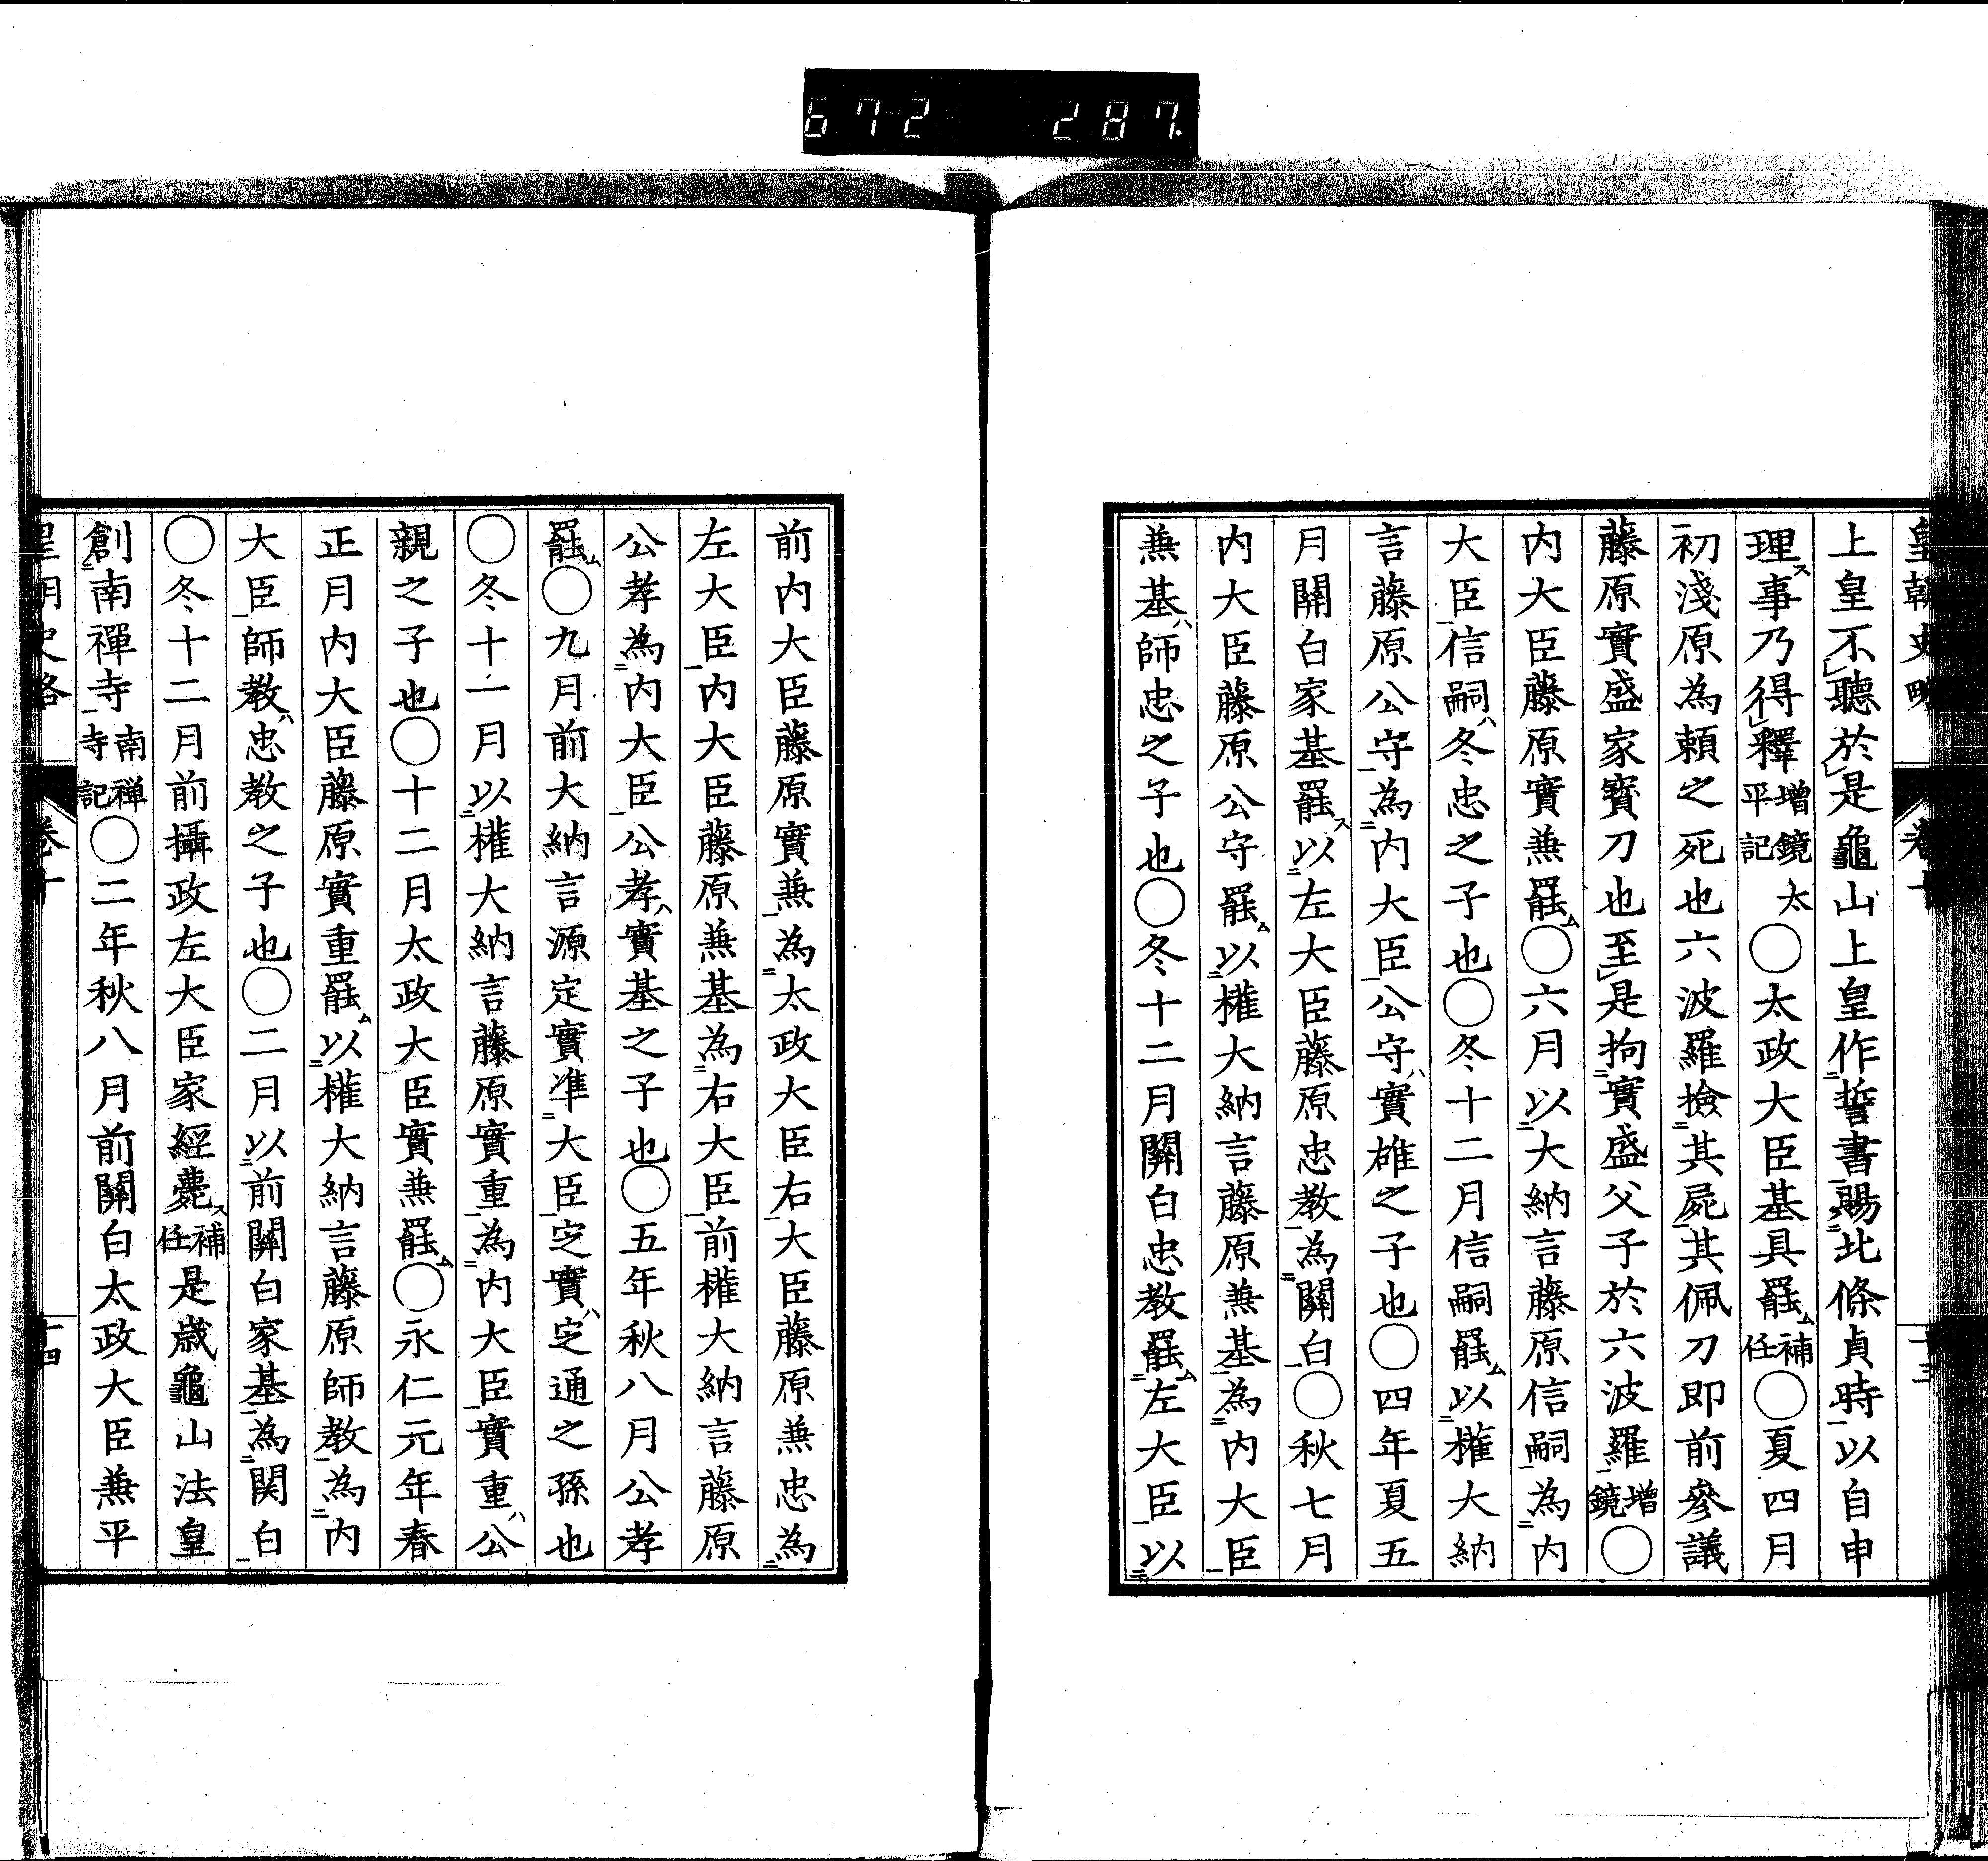 672 287.
皇朝史略 卷十 十三
上皇不聽於是龜山上皇作誓書賜北條貞時以自申
理事乃得釋增鏡太平記○太政大臣基具罷補任○夏四月
初淺原為頼之死也六波羅撿其屍其佩刀即前參議
藤原實盛家寳刀也至是拘實盛父子於六波羅增鏡○
内大臣藤原實兼罷○六月以大納言藤原信嗣為内
大臣信嗣冬忠之子也○冬十二月信嗣罷以權大納
言藤原公守為内大臣公守實雄之子也○四年夏五
月關白家基罷以左大臣藤原忠教為關白○秋七月
内大臣藤原公守罷以權大納言藤原兼基為内大臣
兼基師忠之子也○冬十二月關白忠教罷左大臣以
前内大臣藤原實兼為太政大臣右大臣藤原兼忠為
左大臣内大臣藤原兼基為右大臣前權大納言藤原
公孝為内大臣公孝實基之子也○五年秋八月公孝
罷○九月前大納言源定實准大臣定實定通之孫也
○冬十一月以權大納言藤原實重為内大臣實重公
親之子也○十二月太政大臣實兼罷○永仁元年春
正月内大臣藤原實重罷以權大納言藤原師教為内
大臣師教忠教之子也○二月以前關白家基為関白
○冬十二月前攝政左大臣家經薨補任是歳龜山法皇
創南禪寺南禅寺記○二年秋八月前關白太政大臣兼平
皇朝史略 卷十 十四